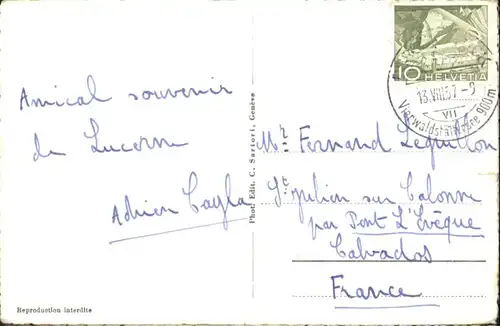 Amical souvenir
de Lucerne
Adrien Cayla
Reproduction interdite
Phot. Edit. C. Sartori, Genève
10 HELVETIA
13.VIII.57.-9
VII
Vierwaldstättersee 900m
Mr. Fernand Lequillon
St. Julien sur Calonne
par Pont L'Evêque
Calvados
France